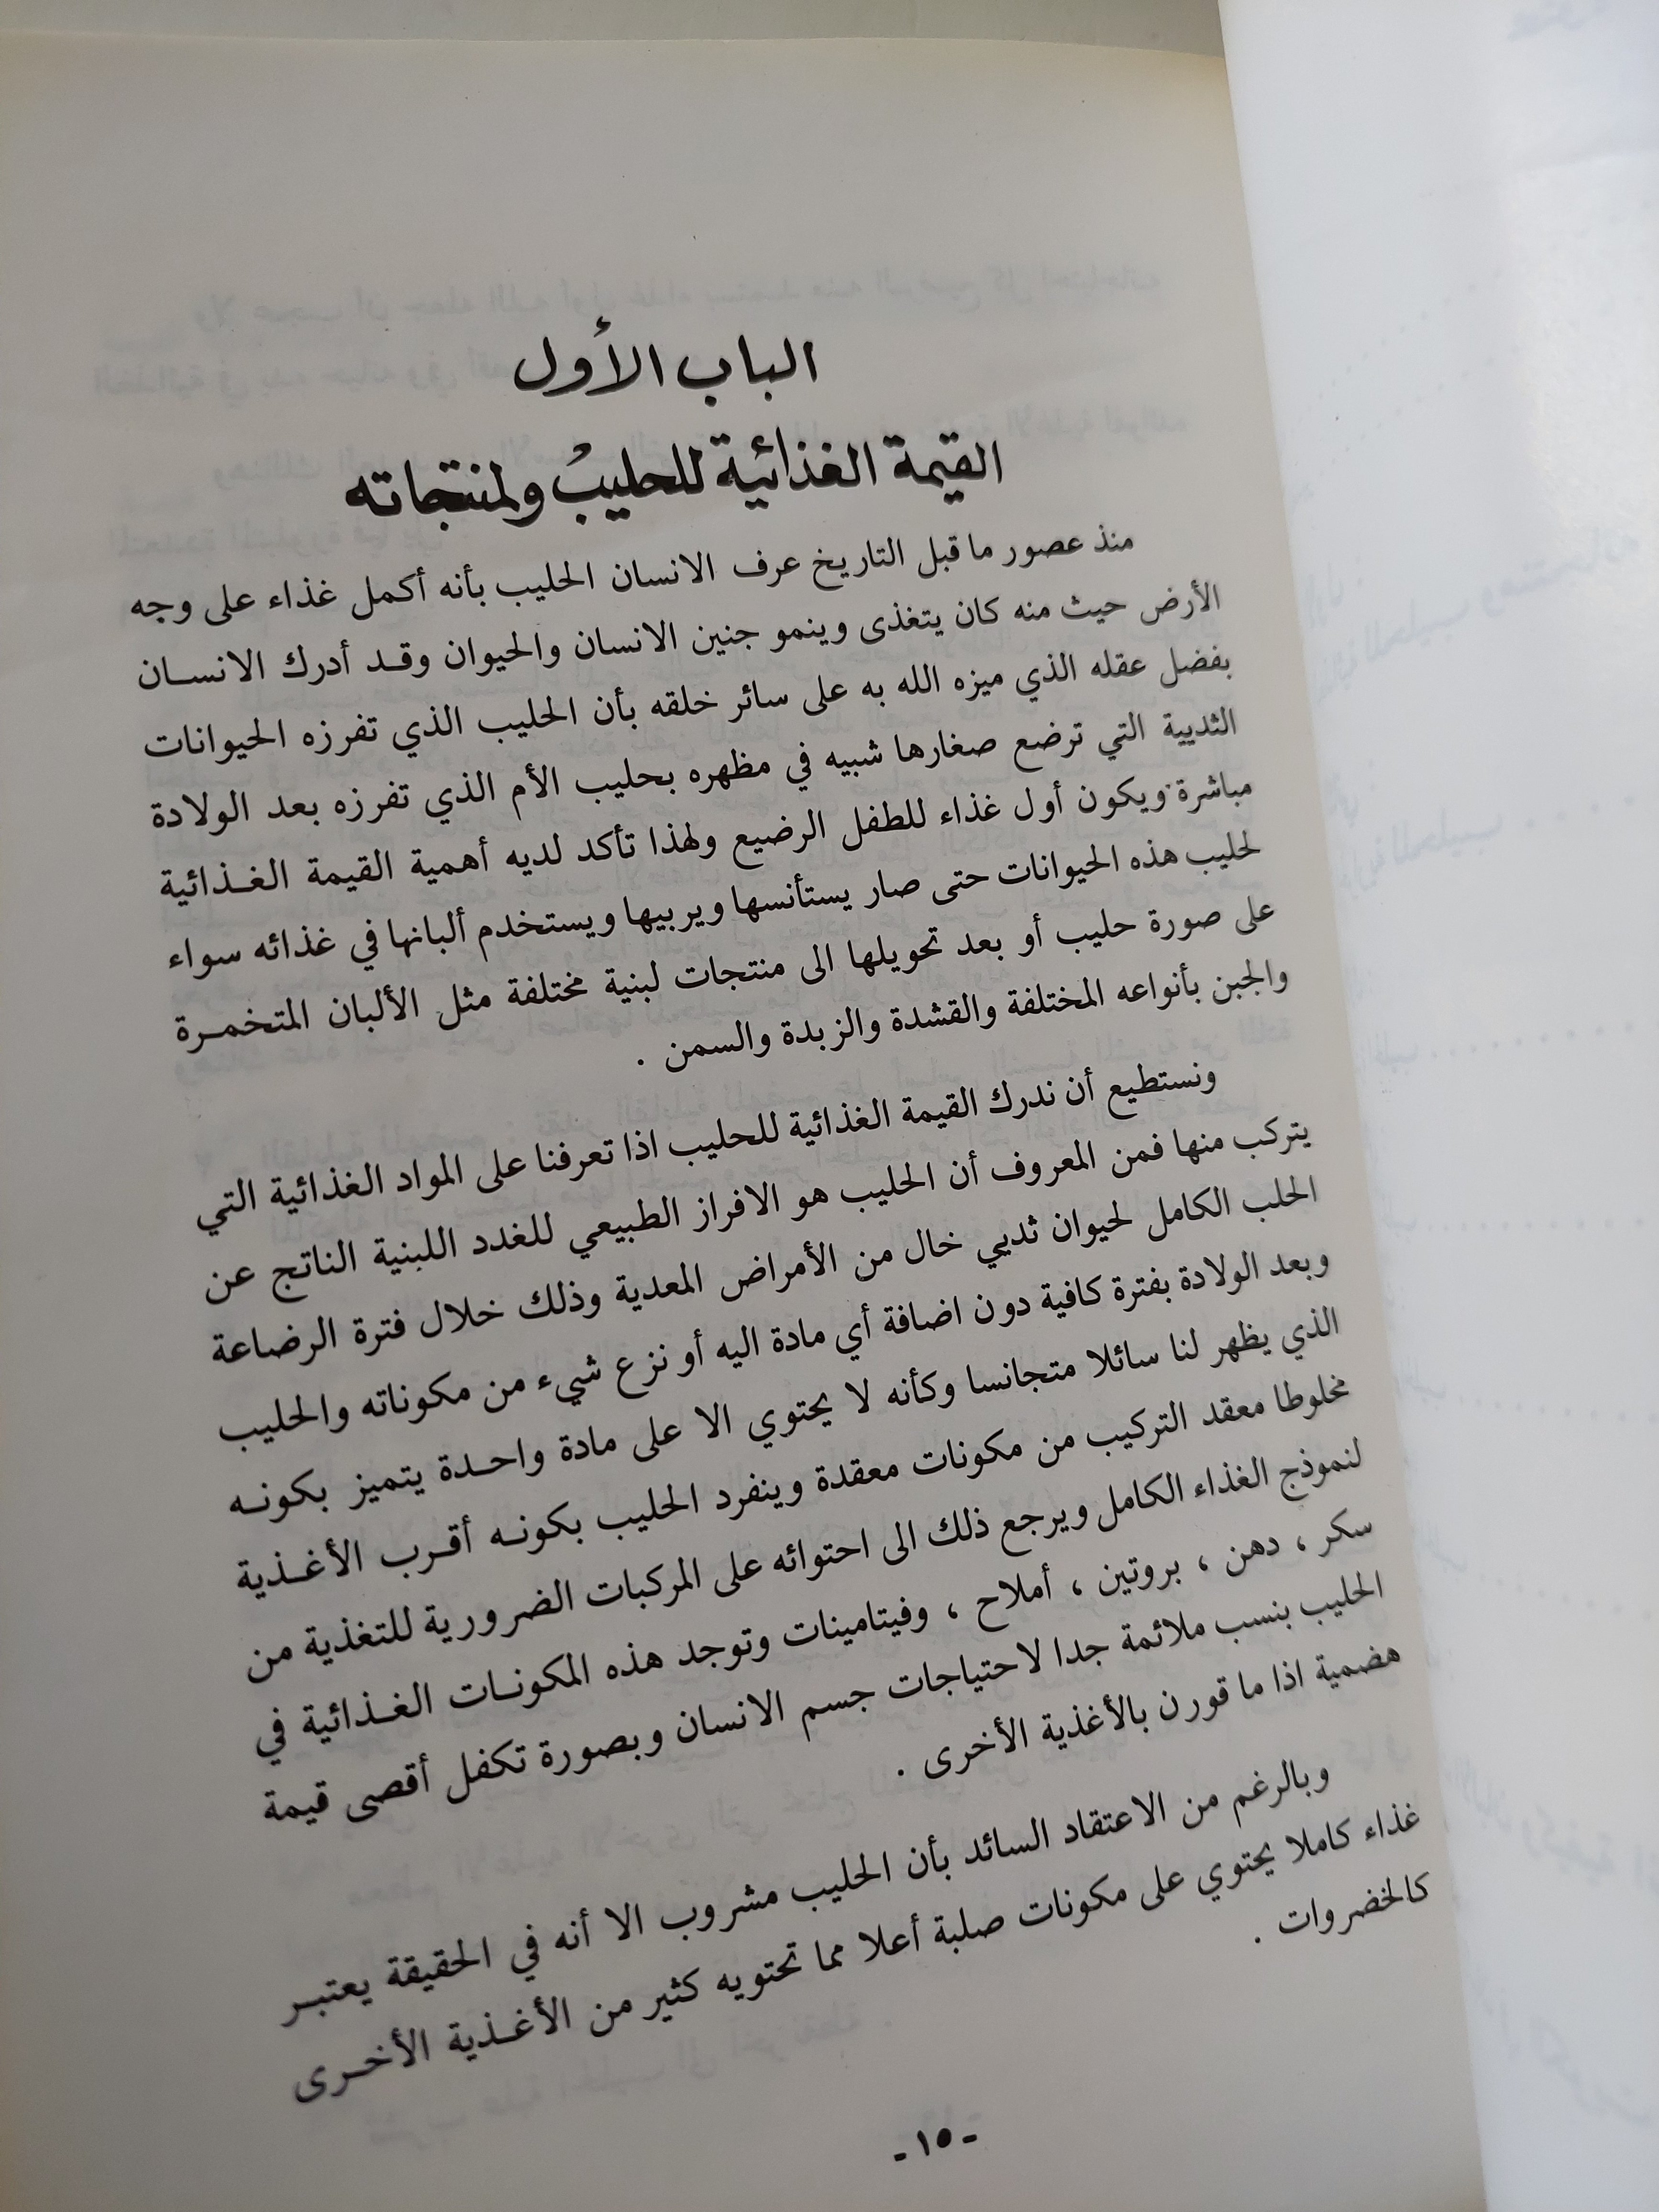 الباب الأول
القيمة الغذائية للحليب ولمنتجاته
منذ عصور ما قبل التاريخ عرف الانسان الحليب بأنه أكمل غذاء على وجه
الأرض حيث منه كان يتغذى وينمو جنين الانسان والحيوان وقد أدرك الانسان
بفضل عقله الذي ميزه الله به على سائر خلقه بأن الحليب الذي تفرزه الحيوانات
الثديية التي ترضع صغارها شبيه في مظهره بحليب الأم الذي تفرزه بعد الولادة
مباشرة ويكون أول غذاء للطفل الرضيع ولهذا تأكد لديه أهمية القيمة الغذائية
لحليب هذه الحيوانات حتى صار يستأنسها ويربيها ويستخدم ألبانها في غذائه سواء
على صورة حليب أو بعد تحويلها الى منتجات لبنية مختلفة مثل الألبان المتخمرة
والجبن بأنواعه المختلفة والقشدة والزبدة والسمن .
ونستطيع أن ندرك القيمة الغذائية للحليب اذا تعرفنا على المواد الغذائية التي
يتركب منها فمن المعروف أن الحليب هو الافراز الطبيعي للغدد اللبنية الناتج عن
الحلب الكامل لحيوان ثديي خال من الأمراض المعدية وذلك خلال فترة الرضاعة
وبعد الولادة بفترة كافية دون اضافة أي مادة اليه أو نزع شيء من مكوناته والحليب
الذي يظهر لنا سائلا متجانسا وكأنه لا يحتوي الا على مادة واحدة يتميز بكونه
مخلوطا معقد التركيب من مكونات معقدة وينفرد الحليب بكونه أقرب الأغذية
لنموذج الغذاء الكامل ويرجع ذلك الى احتوائه على المركبات الضرورية للتغذية من
سكر ، دهن ، بروتين ، أملاح ، وفيتامينات وتوجد هذه المكونات الغذائية في
الحليب بنسب ملائمة جدا لاحتياجات جسم الانسان وبصورة تكفل أقصى قيمة
هضمية اذا ما قورن بالأغذية الأخرى .
وبالرغم من الاعتقاد السائد بأن الحليب مشروب الا أنه في الحقيقة يعتبر
غذاء كاملا يحتوي على مكونات صلبة أعلا مما تحتويه كثير من الأغذية الأخرى
كالخضروات .
- ١٥ -